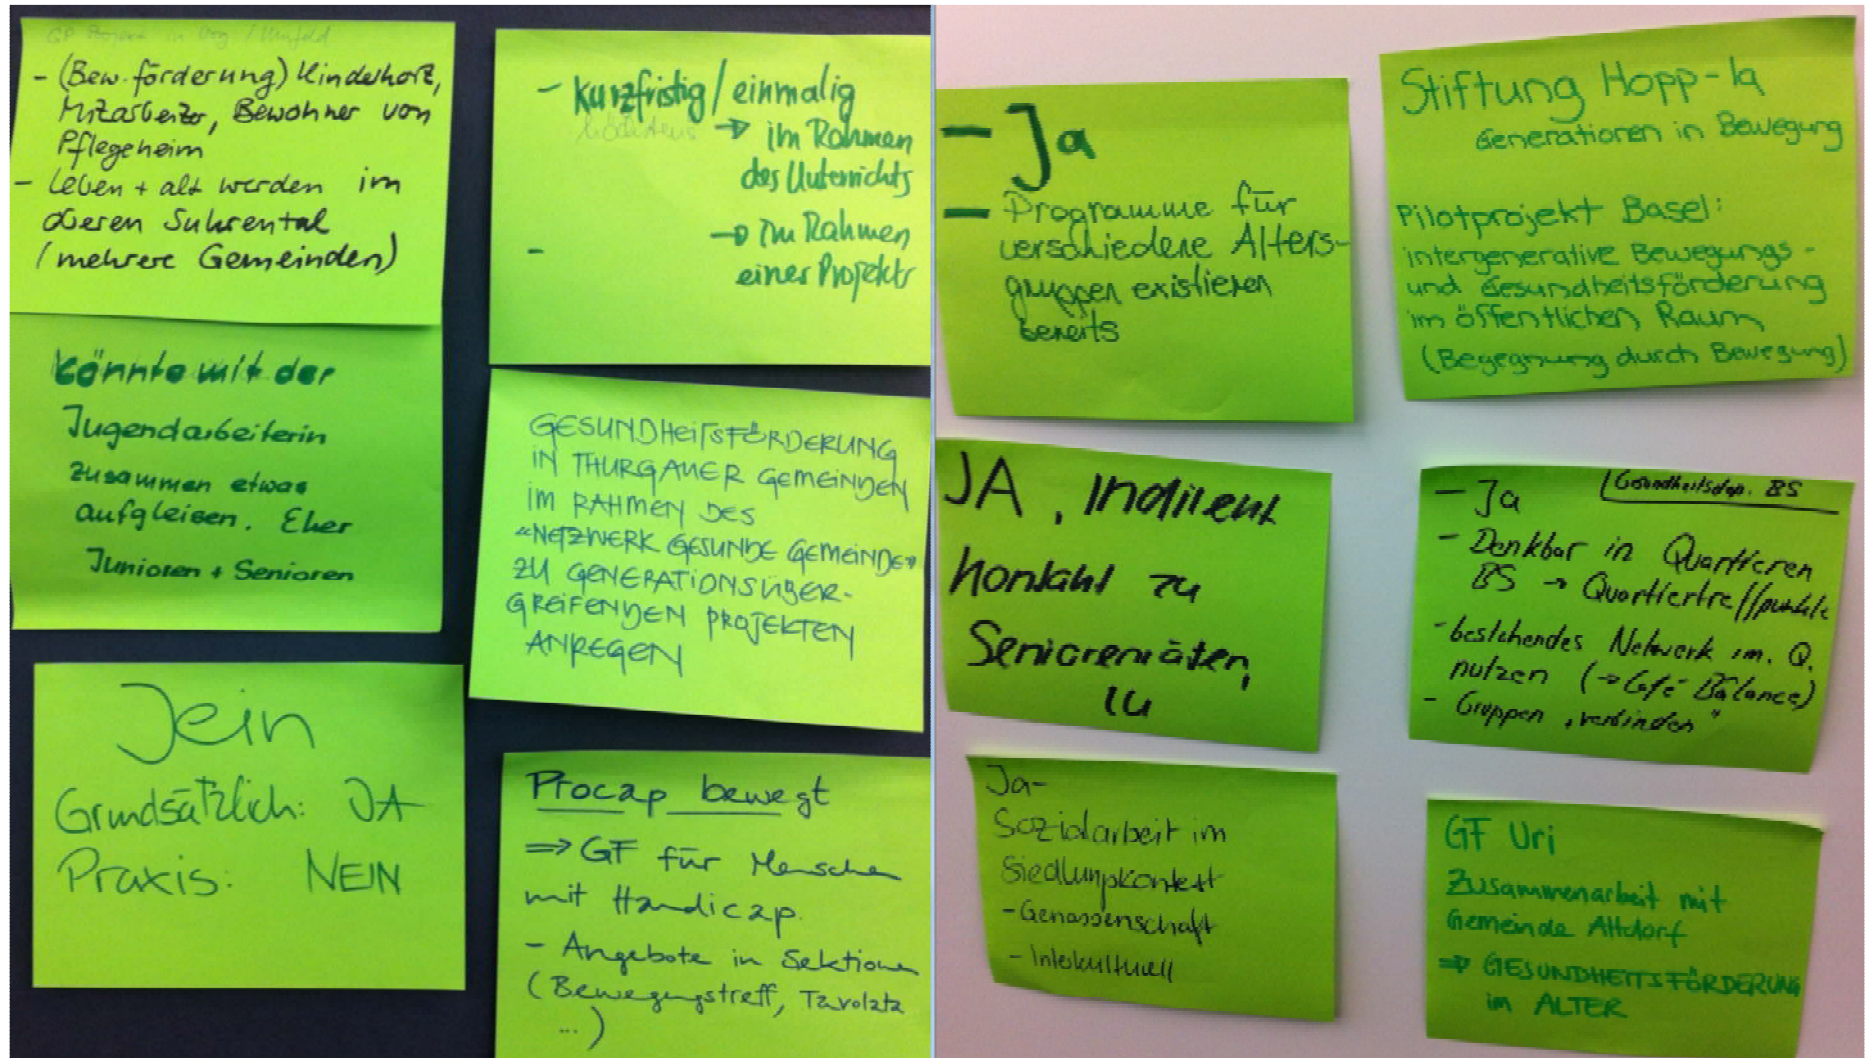 GF Projekt in Org / Umfeld
- (Bew.förderung) Kinderhort,
Mitarbeiter, Bewohner von
Pflegeheim
- Leben + alt werden im
oberen Suhrental
(mehrere Gemeinden)
könnte mit der
Jugendarbeiterin
zusammen etwas
aufgleisen. Eher
Junioren + Senioren
Jein
Grundsätzlich: JA
Praxis: NEIN
- kurzfristig / einmalig
→ im Rahmen
des Unterrichts
- → Im Rahmen
eines Projekts
GESUNDHEITSFÖRDERUNG
IN THURGAUER GEMEINDEN
IM RAHMEN DES
"NETZWERK GESUNDE GEMEINDE"
ZU GENERATIONSÜBER-
GREIFENDEN PROJEKTEN
ANREGEN
Procap bewegt
⇒ GF für Menschen
mit Handicap.
- Angebote in Sektionen
(Bewegungstreff, Tavolata
...)
- Ja
- Programme für
verschiedene Alters-
gruppen existieren
bereits
JA, Indirekt
Kontakt zu
Seniorenräten,
Ja-
Sozialarbeit im
Siedlungskontext
- Genossenschaft
- Interkulturell
Stiftung Hopp-la
Generationen in Bewegung
Pilotprojekt Basel:
intergenerative Bewegungs-
und Gesundheitsförderung
im öffentlichen Raum
(Begegnung durch Bewegung)
Gesundheitsdep. BS
- Ja
- Denkbar in Quartieren
BS → Quartiertreffpunkte
- bestehendes Netwerk im. Q.
nutzen (→ Café Bâlance)
- Gruppen „verbinden"
GF Uri
Zusammenarbeit mit
Gemeinde Altdorf
⇒ GESUNDHEITSFÖRDERUNG
im ALTER